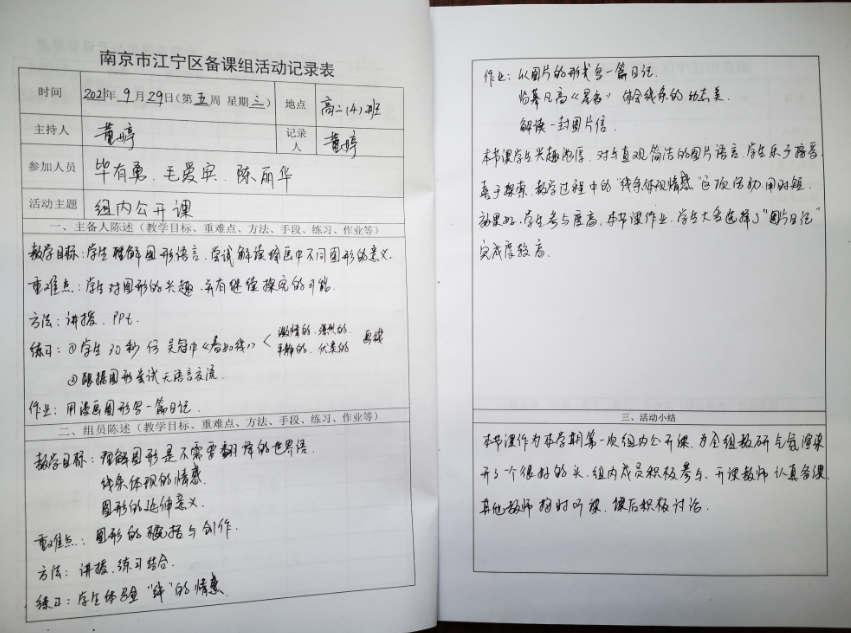 南京市江宁区备课组活动记录表
时间 2021年9月29日(第五周 星期三) 地点 高二(4)班
主持人 黄婷 记录人 黄婷
参加人员 毕有勇、毛爱实、陈丽华
活动主题 组内公开课
一、主备人陈述(教学目标、重难点、方法、手段、练习、作业等)
教学目标:学生理解图形语言,尝试解读绘画中不同图形的意义.
重难点:学生对图形的兴趣,并有继续探究的可能.
方法:讲授、PPt.
练习:①学生30秒仿吴冠中《春如线》< 激情的、强烈的、
平静的、优柔的 画线
②根据图形尝试无语言交流.
作业:用漫画图形写一篇日记.
二、组员陈述(教学目标、重难点、方法、手段、练习、作业等)
教学目标:理解图形是不需要翻译的世界语.
线条体现的情感.
图形的延伸意义.
重难点:图形的概括与创作.
方法:讲授、练习结合.
练习:学生体会"线"的情感.
作业:以图片的形式写一篇日记.
临摹凡高《星夜》体会线条的动态美.
解读一封图片信.
本节课学生兴趣浓厚,对与直观简洁的图片语言,学生乐于接受
喜于探索,教学过程中的"线条体现情感"这项活动用时短、
效果好,学生参与度高,本节课作业,学生大多选择了"图片日记"
完成度较高.
三、活动小结
本节课作为本学期第一次组内公开课,为全组教研气氛渲染
开了个很好的头.组内成员积极参与,开课教师认真备课,
其他教师按时听课,课后积极讨论.